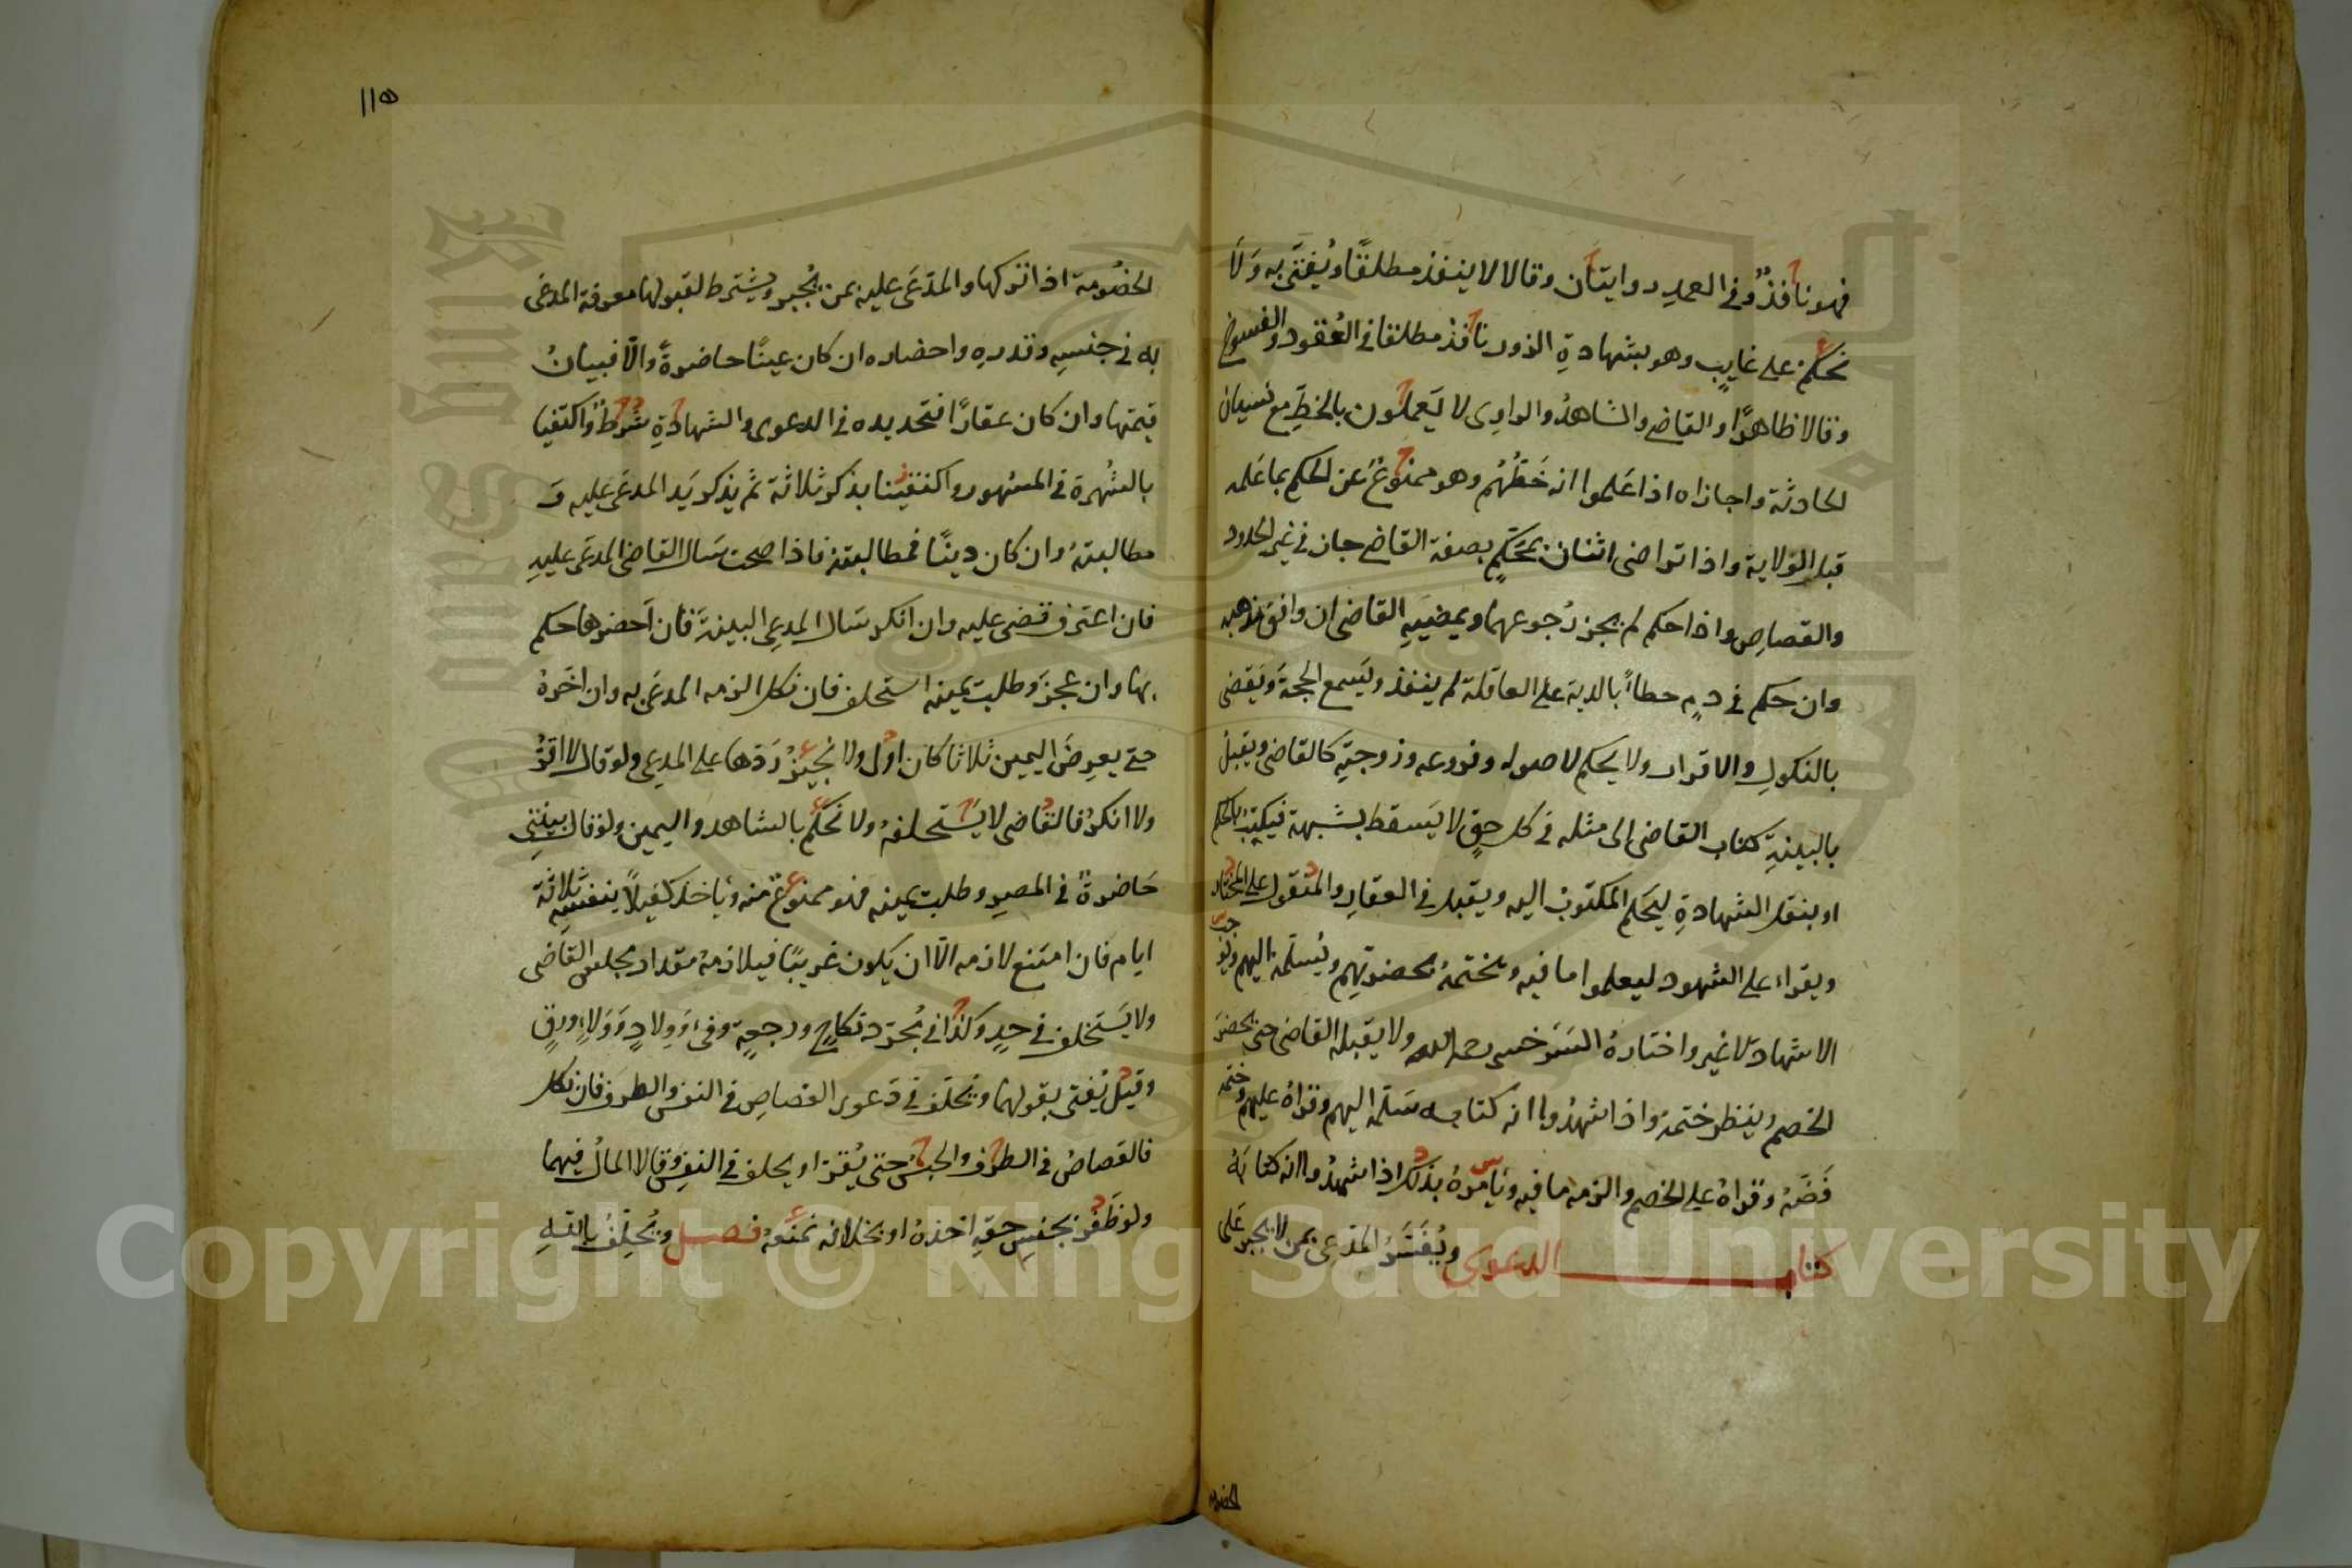 فهو نافذ وفى العمد روايتان وقالا لا ينفذ مطلقًا ويُفتَى به وَلَا
نحكم على غايبٍ وهو بشهادةِ الزور نافذ مطلقا فى العُقود والفسوخ
وقالا ظاهرًا والقاضى والشاهدُ والراوى لا يَعملون بالخطِّ مع نسيان
الحادثة واجازاه اذا عَلموا انه خَطُّهُم وهو ممنوعٌ عن الحكم بما عَلمه
قبل الولاية واذا تراضى اثنان بمحَكَّمٍ بصفة القاضى جاز فى غير الحدود
والقصاصِ واذا حكم لم يجز رُجوعهما ويمضيهِ القاضى ان وافق مذهبه
وان حكم فى دمٍ خطاءً بالدية على العاقلة لم ينفذ ويَسمع الحجةَ ويَقضى
بالنكولِ والاقرار ولا يحكم لاصوله وفروعه وزوجتِهِ كالقاضى ويقبلُ
بالبينةِ كتاب القاضى الى مثله فى كل حقٍ لا يَسقط بشبهة فيكتبُ بالحكم
او بنقل الشهادةِ ليَحكم المكتوبُ اليه ويقبل فى العقارِ والمنقول على المختار
ويقراء على الشهود ليعلموا ما فيه ويختمهُ بحضرتِهم ويُسلّمهُ اليهم ويُوجبُ
الاشهادَ لا غير واختارهُ السَرَخسى رحمه الله ولا يقبله القاضى حتى يحضرَ
الخصم وينظر ختمهُ واذا شهدُوا انه كتابه سَلّمه اليهم وقراهُ عليهم وختمه
فَضّهُ وقراهُ على الخصم والزمه ما فيه ويَامرهُ بذلك اذا شهدُوا انه كتابهُ
كتاب الدعوى ويُفَسَّرُ المدّعى بمن لا يجبر عَلى
الخصُو
١١٥
الخصُومة اذا تركها والمدَّعَى عليه بمن يُجبر ويُشترط لقبولها معرفة المدعَى
به فى جنسِهِ وقدرهِ واحضاره ان كان عينًا حاضرةً والّا فبيانُ
قيمتها وان كان عقارًا فتحديده فى الدعوى والشهادةِ شرطٌ واكتفيا
بالشُهرة فى المشهور واكتفينا بذكر ثلاثة ثم يذكر يَد المدعَى عليه وَ
مطالبتهُ وان كان دينًا فمطالبته فاذا صحت سَال القاضى المدعَى عليهِ
فان اعترف قضى عليه وان انكر سَال المدعِى البينةَ فان اَحضرها حكم
بها وان عجزَ وطلبت يمينه استحلف فان نكل الزمه المدعَى به وان اخّرهُ
حتى يعرِضَ اليمين ثلاثا كان اولى ولا نُجيزُ رَدّها على المدعِى ولو قال لا اقرُّ
ولا انكرُ فالقاضى لا يَستحلفهُ ولا نحكم بالشاهد واليمين ولو قال بينتى
حَاضرةٌ فى المصرِ وطلبت يمينه فهو ممنوعٌ منه ويَاخذ كفيلًا بنفسِهِ ثلاثة
ايام فان امتنع لازمه الّا ان يكون غريبًا فيلازمهُ مقدار مجلس القاضى
ولا يَستحلف فى حدٍ وكذا فى مُجرّد نكاحٍ ورجعةٍ وفىءٍ وولادٍ وَوَلاءٍ ورقٍ
وقيل يُفتى بقولهما ويُحلّف فى دَعوى القصاصِ فى النفسِ والطرفِ فان نكل
فالقصاصُ فى الطرفِ والحبسُ حتى يُقرَّ او يحلف فى النفسِ وقالا المالُ فيهما
ولو ظَفَر بجنسِ حقّهِ اخذهُ او بخلافه نمنعهُ فصل ويُحلّفُ باللهِ